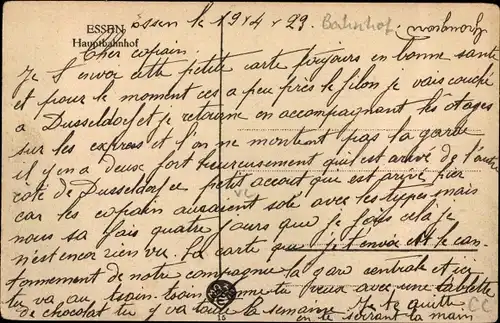 ESSEN
Hauptbahnhof
Essen le 19 4 29 Bahnhof
Cher copain.
Je t'envoi cette petite carte toujours en bonne santé
et pour le moment ces a peu près le filon je vais couche
a Dusseldorf et je retourne en accompagnant les otages
sur les express et l'on ne montent pas la garde
il y en a deux fort heureusement qui est arrivé de l'autre
coté de Dusseldorf ce petit accout que est arrivé hier
car les copain auraient soté avec les types mais
nous sa fais quatre jours que je fais cela je
n'est encor rien vu. La carte que je t'envoi est le can-
tonnement de notre compagnie la gare centrale et ici
tu va au train-train comme tu veux avec une tablette
de chocolat tu y va toute la semaine. Je te quitte
en te serrant la main
15
CC